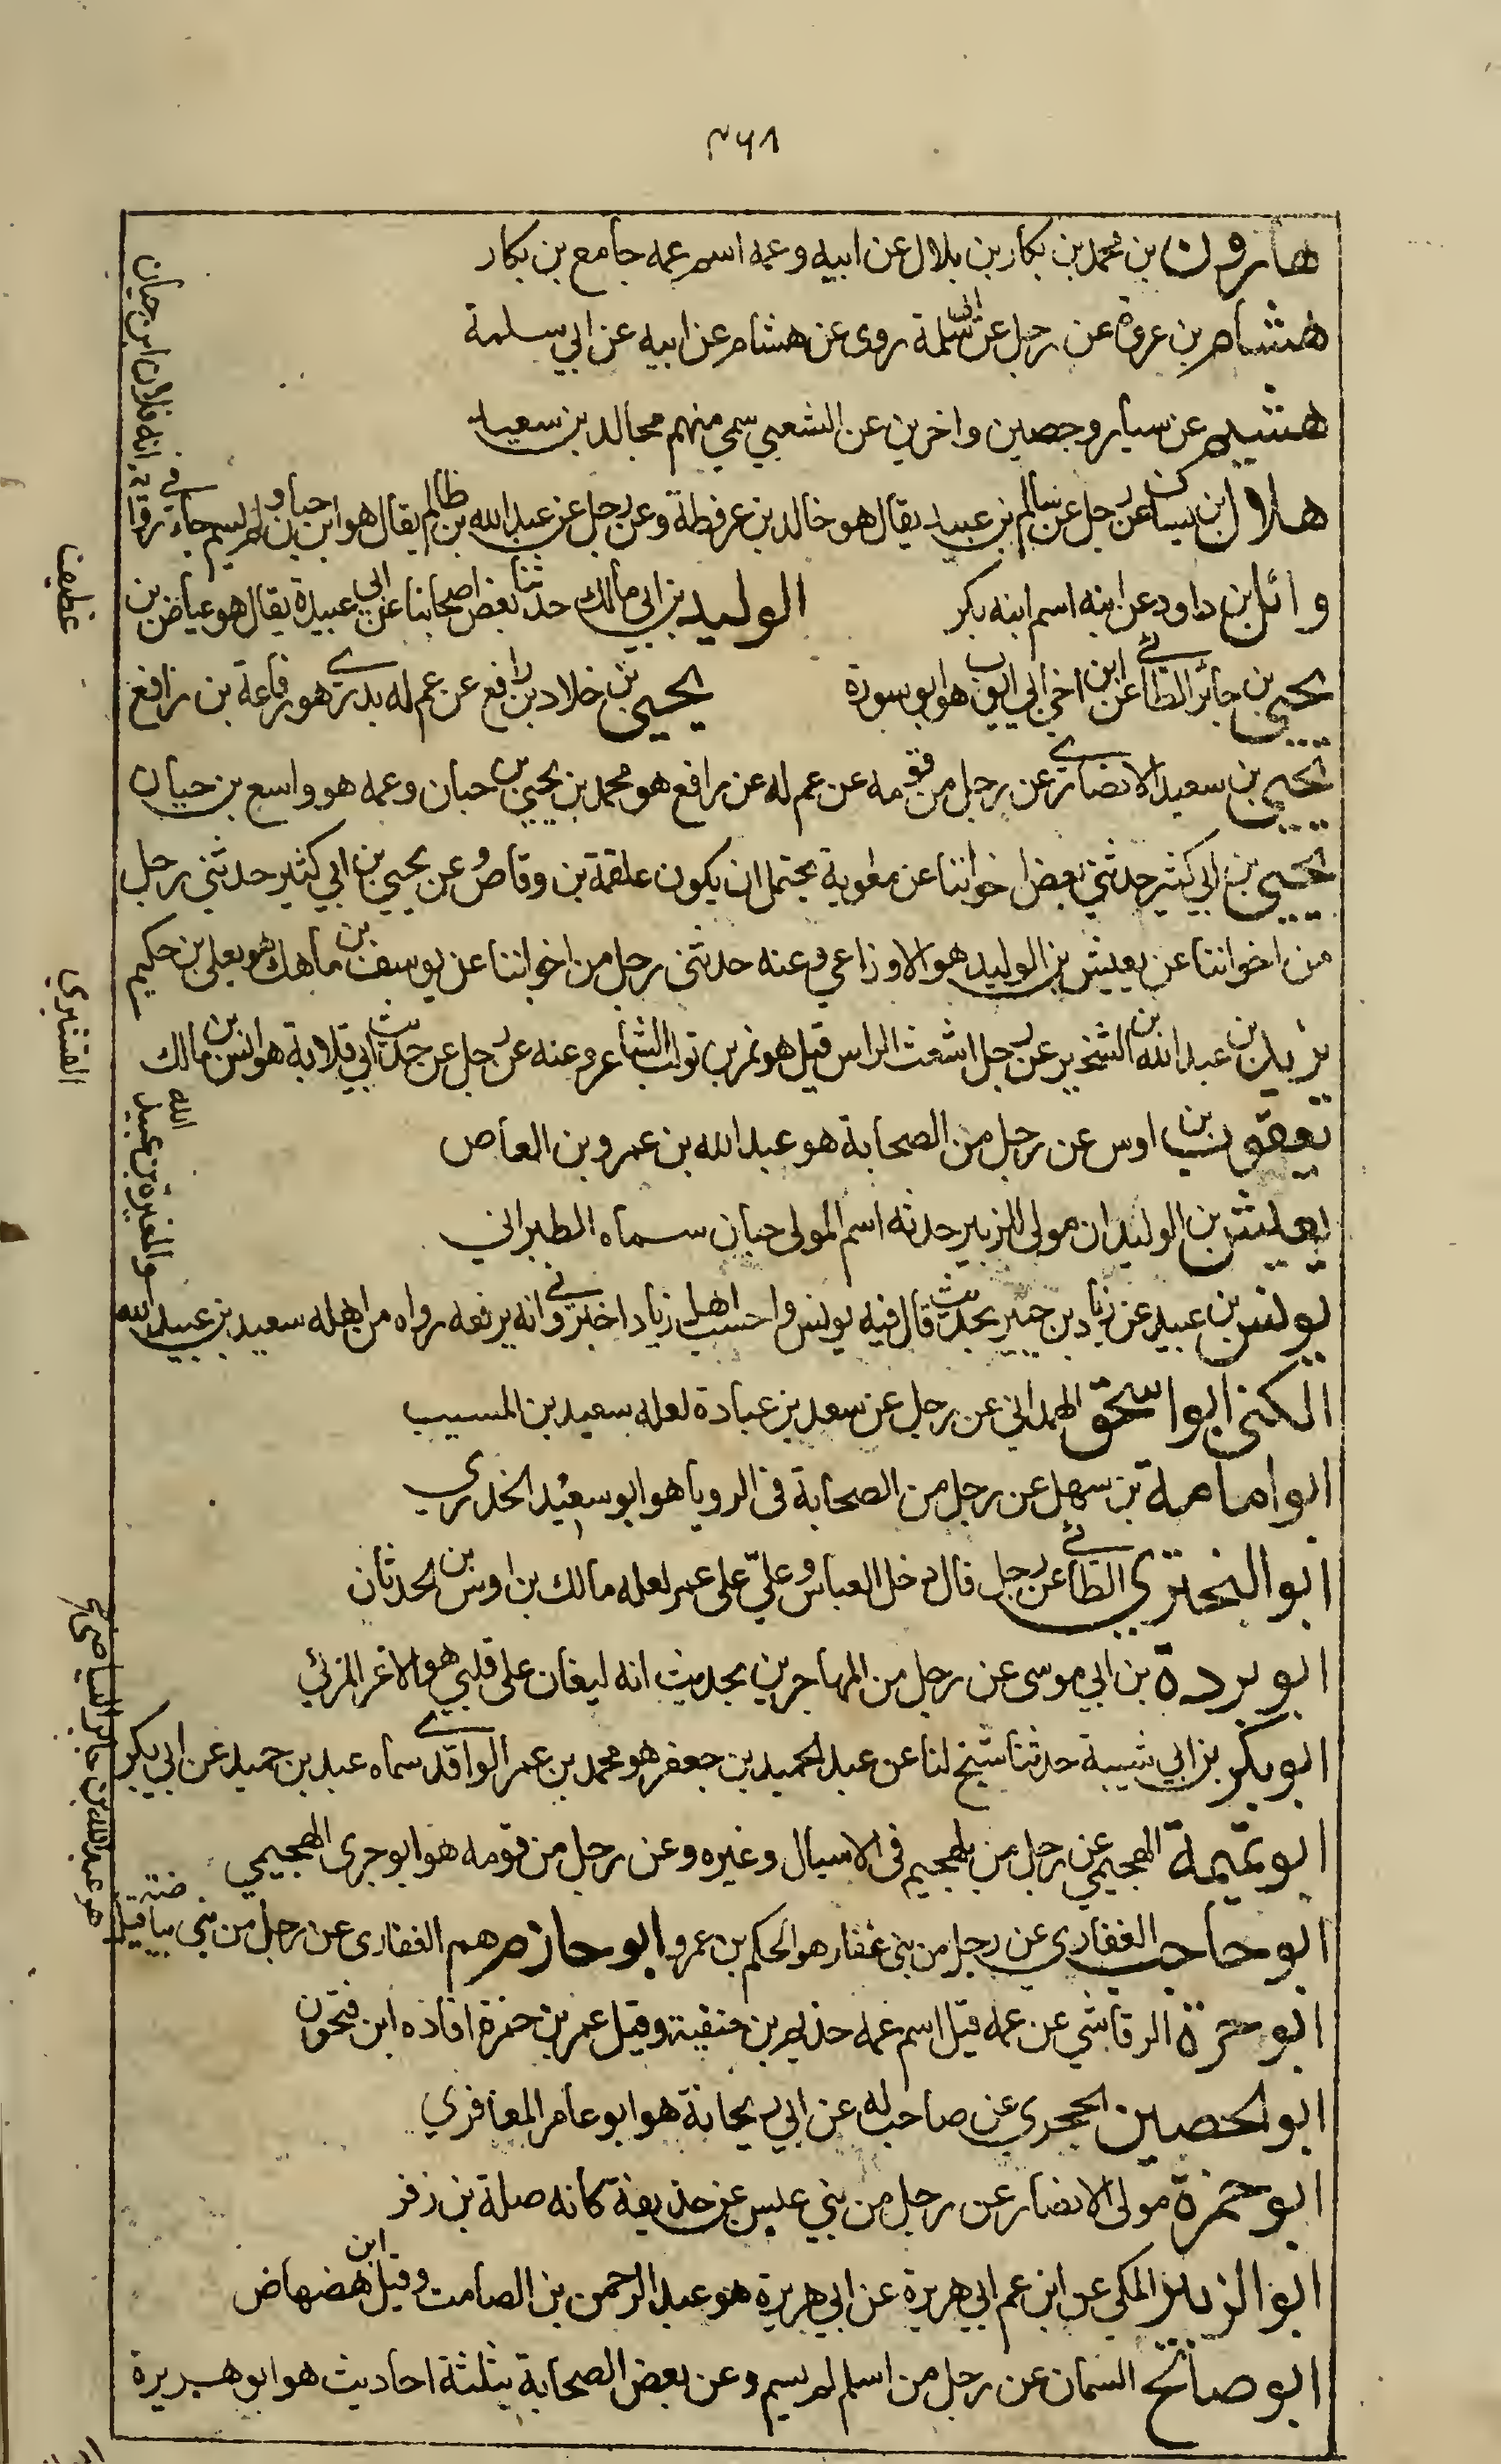 ٣٦٨
هارون بن محمد بن بكار بن بلال عن ابيه وعمه اسم عمه جامع بن بكار
هشام بن عروة عن رجل عن ابي سلمة روى عن هشام عن ابيه عن ابي سلمة
هشيم عن سيار وحصين واخرين عن الشعبي سمي منهم مجالد بن سعيد
هلال ابن يساف عن رجل عن سالم بن عبيد يقال هو خالد بن عرفطة وعن رجل عن عبد الله بن ظالم يقال هو ابن حيان ولم يسم جاء في رواية انه فلان ابن حيان
وائل بن داود عن ابنه اسم ابنه بكر الوليد بن ابي مالك حدثنا بعض اصحابنا عن ابي عبيدة يقال هو عياض بن غطيف
يحيى بن جابر الطائي عن ابن اخي ابي ايوب هو ابو سورة يحيى بن خلاد بن رافع عن عم له بدري هو رفاعة بن رافع
يحيى بن سعيد الانصاري عن رجل من قومه عن عم له عن رافع هو محمد بن يحيى بن حبان وعمه هو واسع بن حبان
يحيى بن ابي كثير حدثني بعض اخواننا عن معوية يحتمل ان يكون علقمة بن وقاص وعن يحيى بن ابي كثير حدثني رجل
من اخواننا عن يعيش بن الوليد هو الاوزاعي وعنه حدثني رجل من اخواننا عن يوسف بن ماهك هو يعلى بن حكيم
يزيد بن عبد الله بن الشخير عن رجل اشعث الراس قيل هو نمر بن تولب الشاعر وعنه عن رجل عن حديث ابي قلابة هو انس بن مالك القشيري
يعقوب بن اوس عن رجل من الصحابة هو عبد الله بن عمرو بن العاص
يعيش بن الوليد ان مولى الزبير حدثه اسم المولى حبان سماه الطبراني
يونس بن عبيد عن زياد بن جبير بحديث قال فيه يونس واحسب اهل زياد اخبروني انه يرفعه رواه من اهله سعيد بن عبيد الله والمغيرة بن عبيد الله
الكنى ابو اسحق الهمداني عن رجل عن سعد بن عبادة لعله سعيد بن المسيب
ابو امامة بن سهل عن رجل من الصحابة في الرويا هو ابو سعيد الخدري
ابو البختري الطائي عن رجل قال دخل العباس وعلي على عمر لعله مالك بن اوس بن الحدثان
ابو بردة بن ابي موسى عن رجل من المهاجرين بحديث انه ليغان على قلبي هو الاغر المزني
ابو بكر بن ابي شيبة حدثنا شيخ لنا عن عبد الحميد بن جعفر هو محمد بن عمر الواقدي سماه عبد بن حميد عن ابي بكر
ابو تميمة الهجيمي عن رجل من بلهجيم في الاسبال وغيره وعن رجل من قومه هو ابو جرى الهجيمي
ابو حاجب الغفاري عن رجل من بني غفار هو الحكم بن عمرو ابو حازم هم الغفاري عن رجل من بني بياضة قيل هو عبد الله بن جابر البياضي
ابو حرة الرقاشي عن عمه قيل اسم عمه حذيم بن حنيفة وقيل عمر بن حمزة افاده ابن فتحون
ابو الحصين الحجري عن صاحب له عن ابي ريحانة هو ابو عامر المعافري
ابو حمزة مولى الانصار عن رجل من بني عبس عن حذيفة كانه صلة بن زفر
ابو الزبير المكي عن ابن عم ابي هريرة عن ابي هريرة هو عبد الرحمن بن الصامت وقيل ابن هضهاض
ابو صالح السمان عن رجل من اسلم لم يسم وعن بعض الصحابة بثلثة احاديث هو ابو هريرة